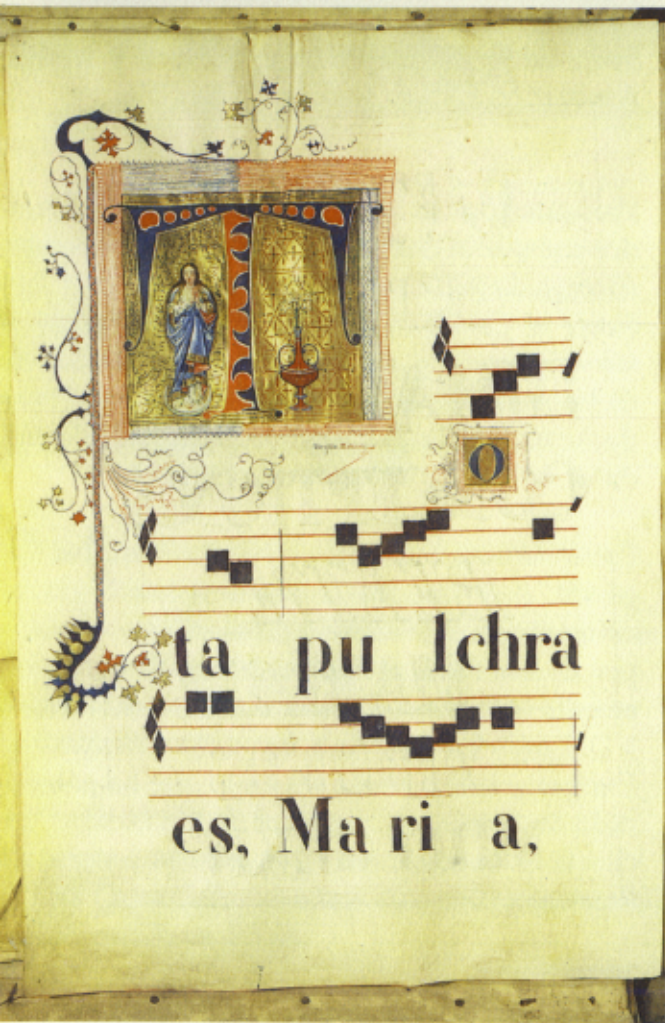 T O
ta pu lchra
es, Ma ri a,